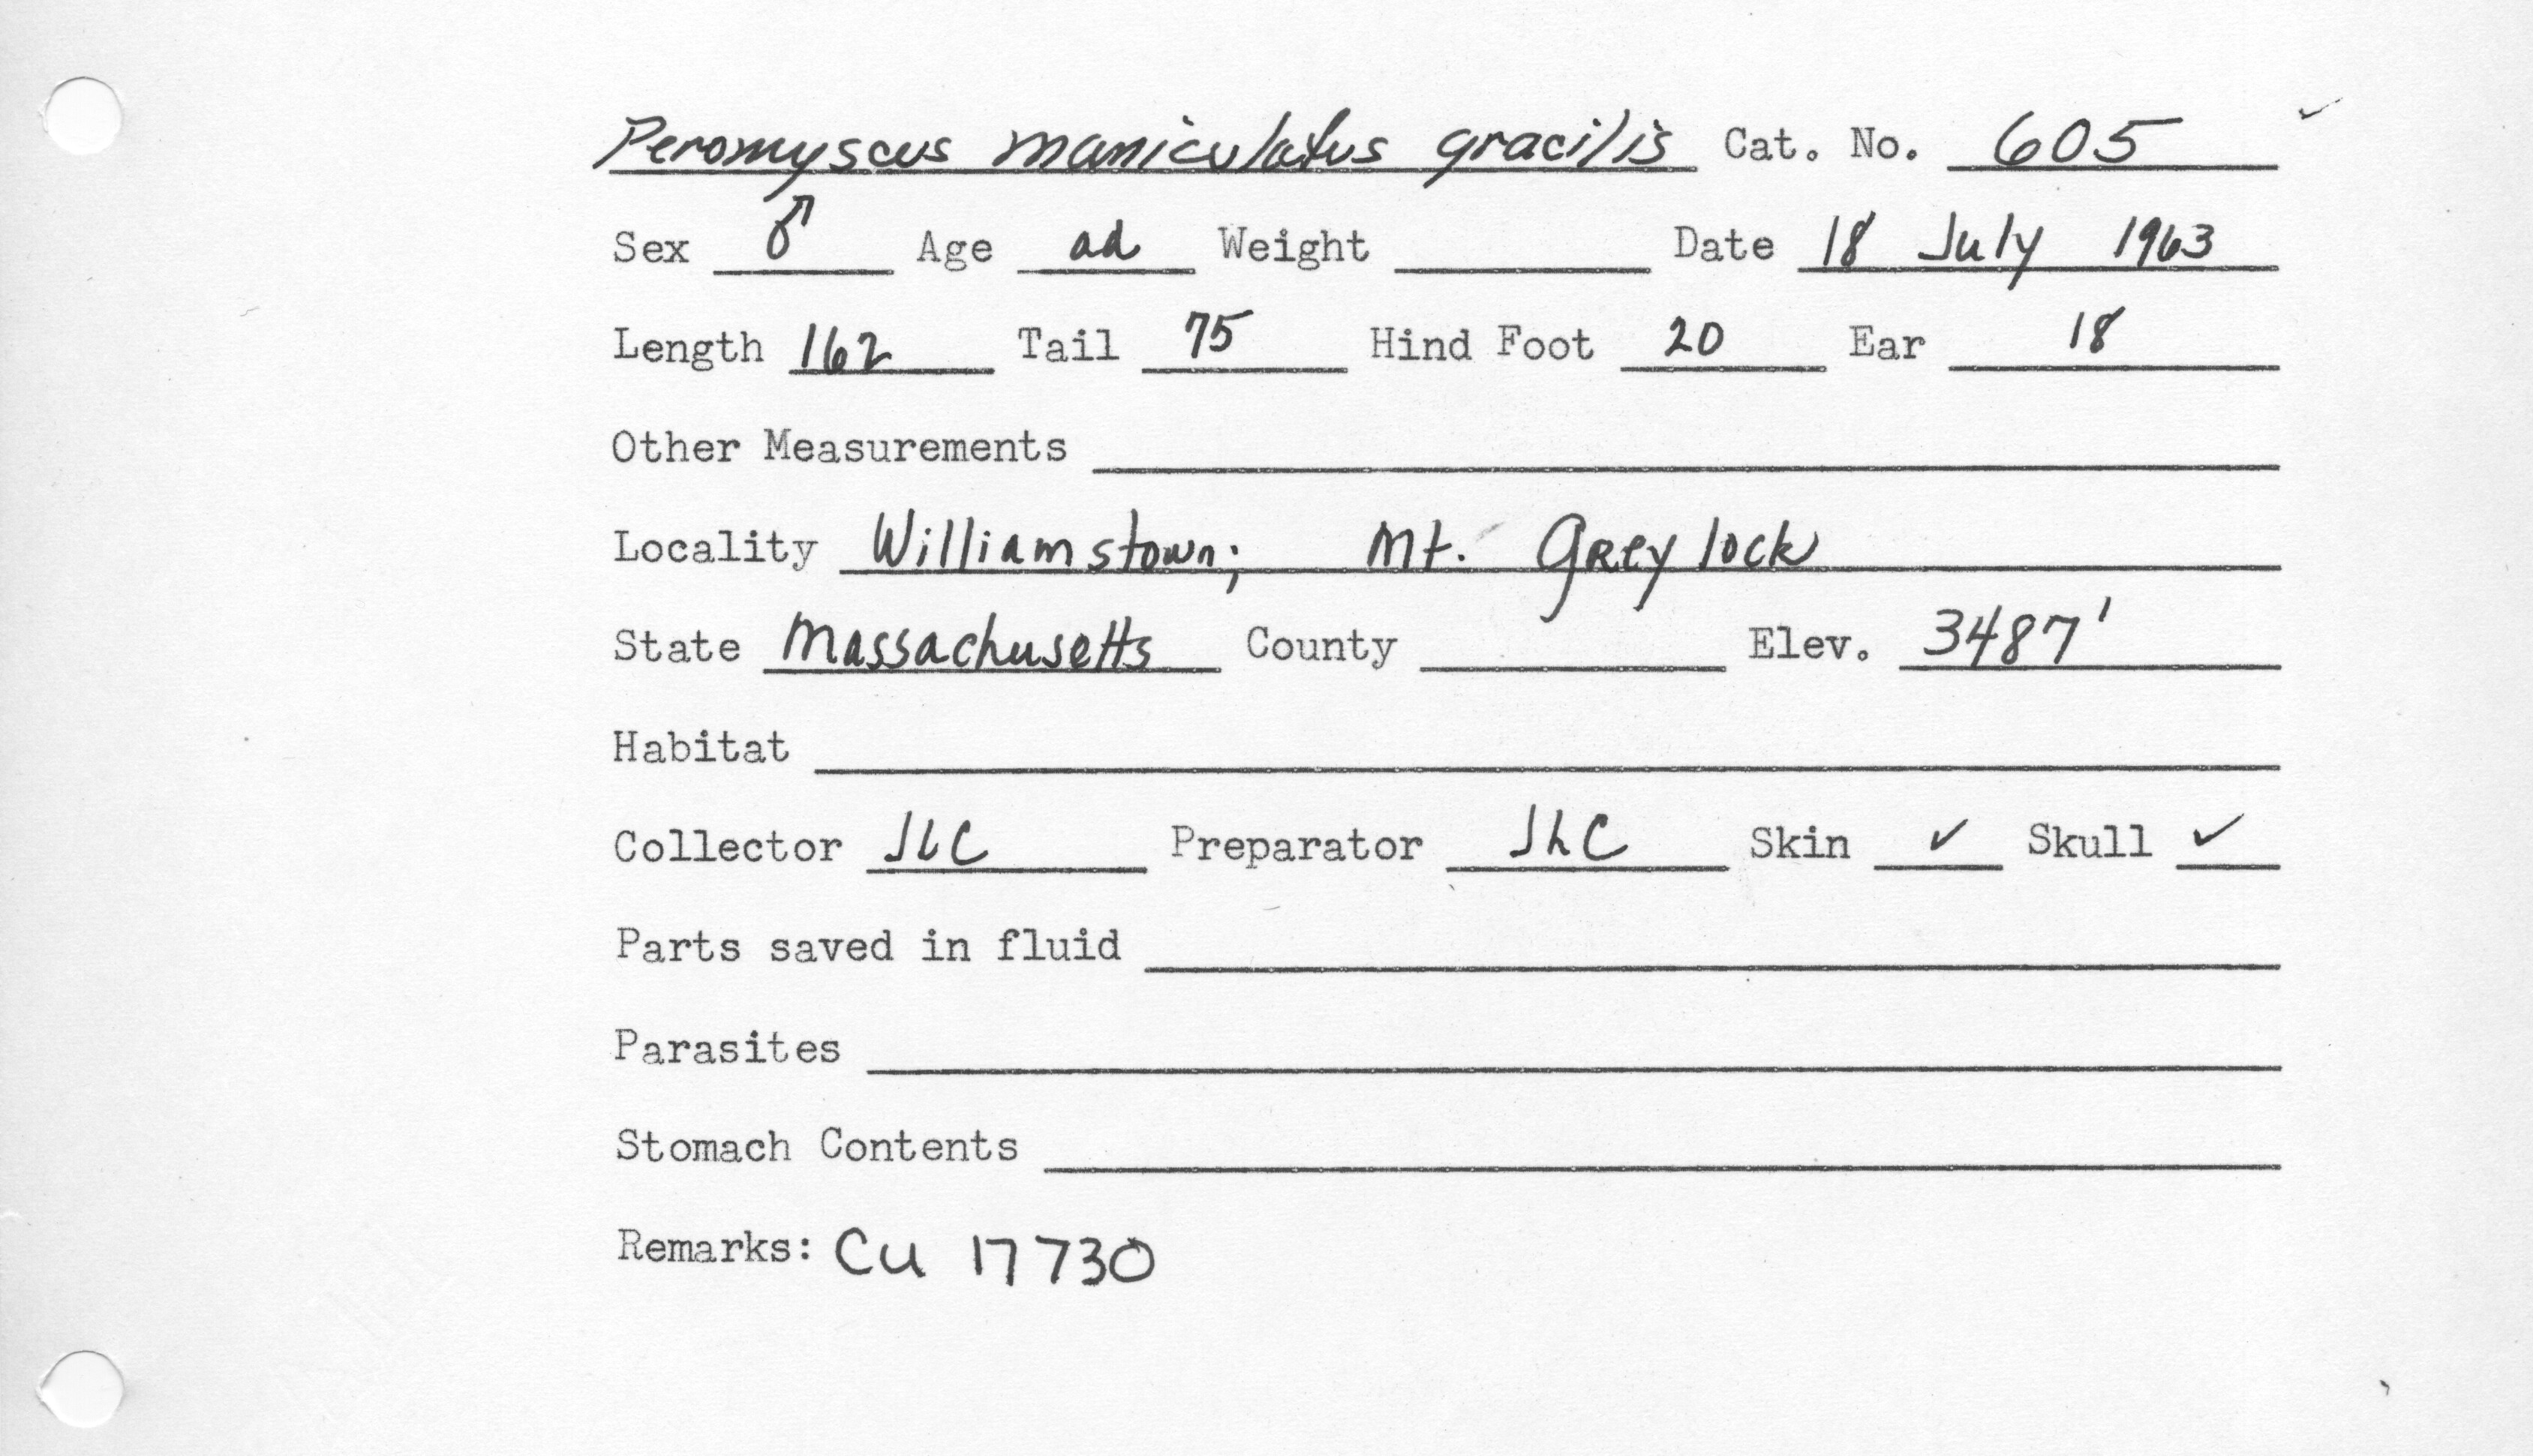 Peromyscus maniculatus gracilis Cat. No. 605 ✓
Sex ♂ Age ad Weight Date 18 July 1963
Length 162 Tail 75 Hind Foot 20 Ear 18
Other Measurements
Locality Williamstown; Mt. Greylock
State Massachusetts County Elev. 3487'
Habitat
Collector JLC Preparator JLC Skin ✓ Skull ✓
Parts saved in fluid
Parasites
Stomach Contents
Remarks: CU 17730